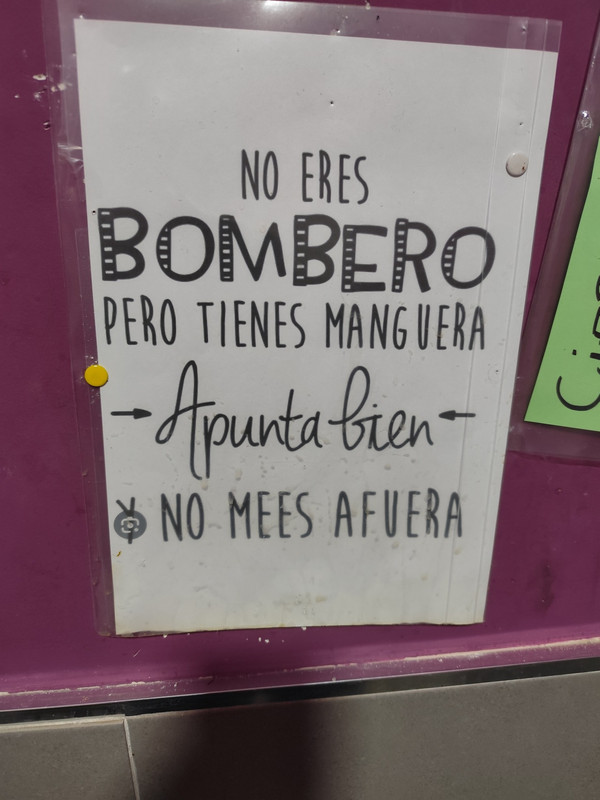 NO ERES
BOMBERO
PERO TIENES MANGUERA
Apunta bien
Y NO MEES AFUERA